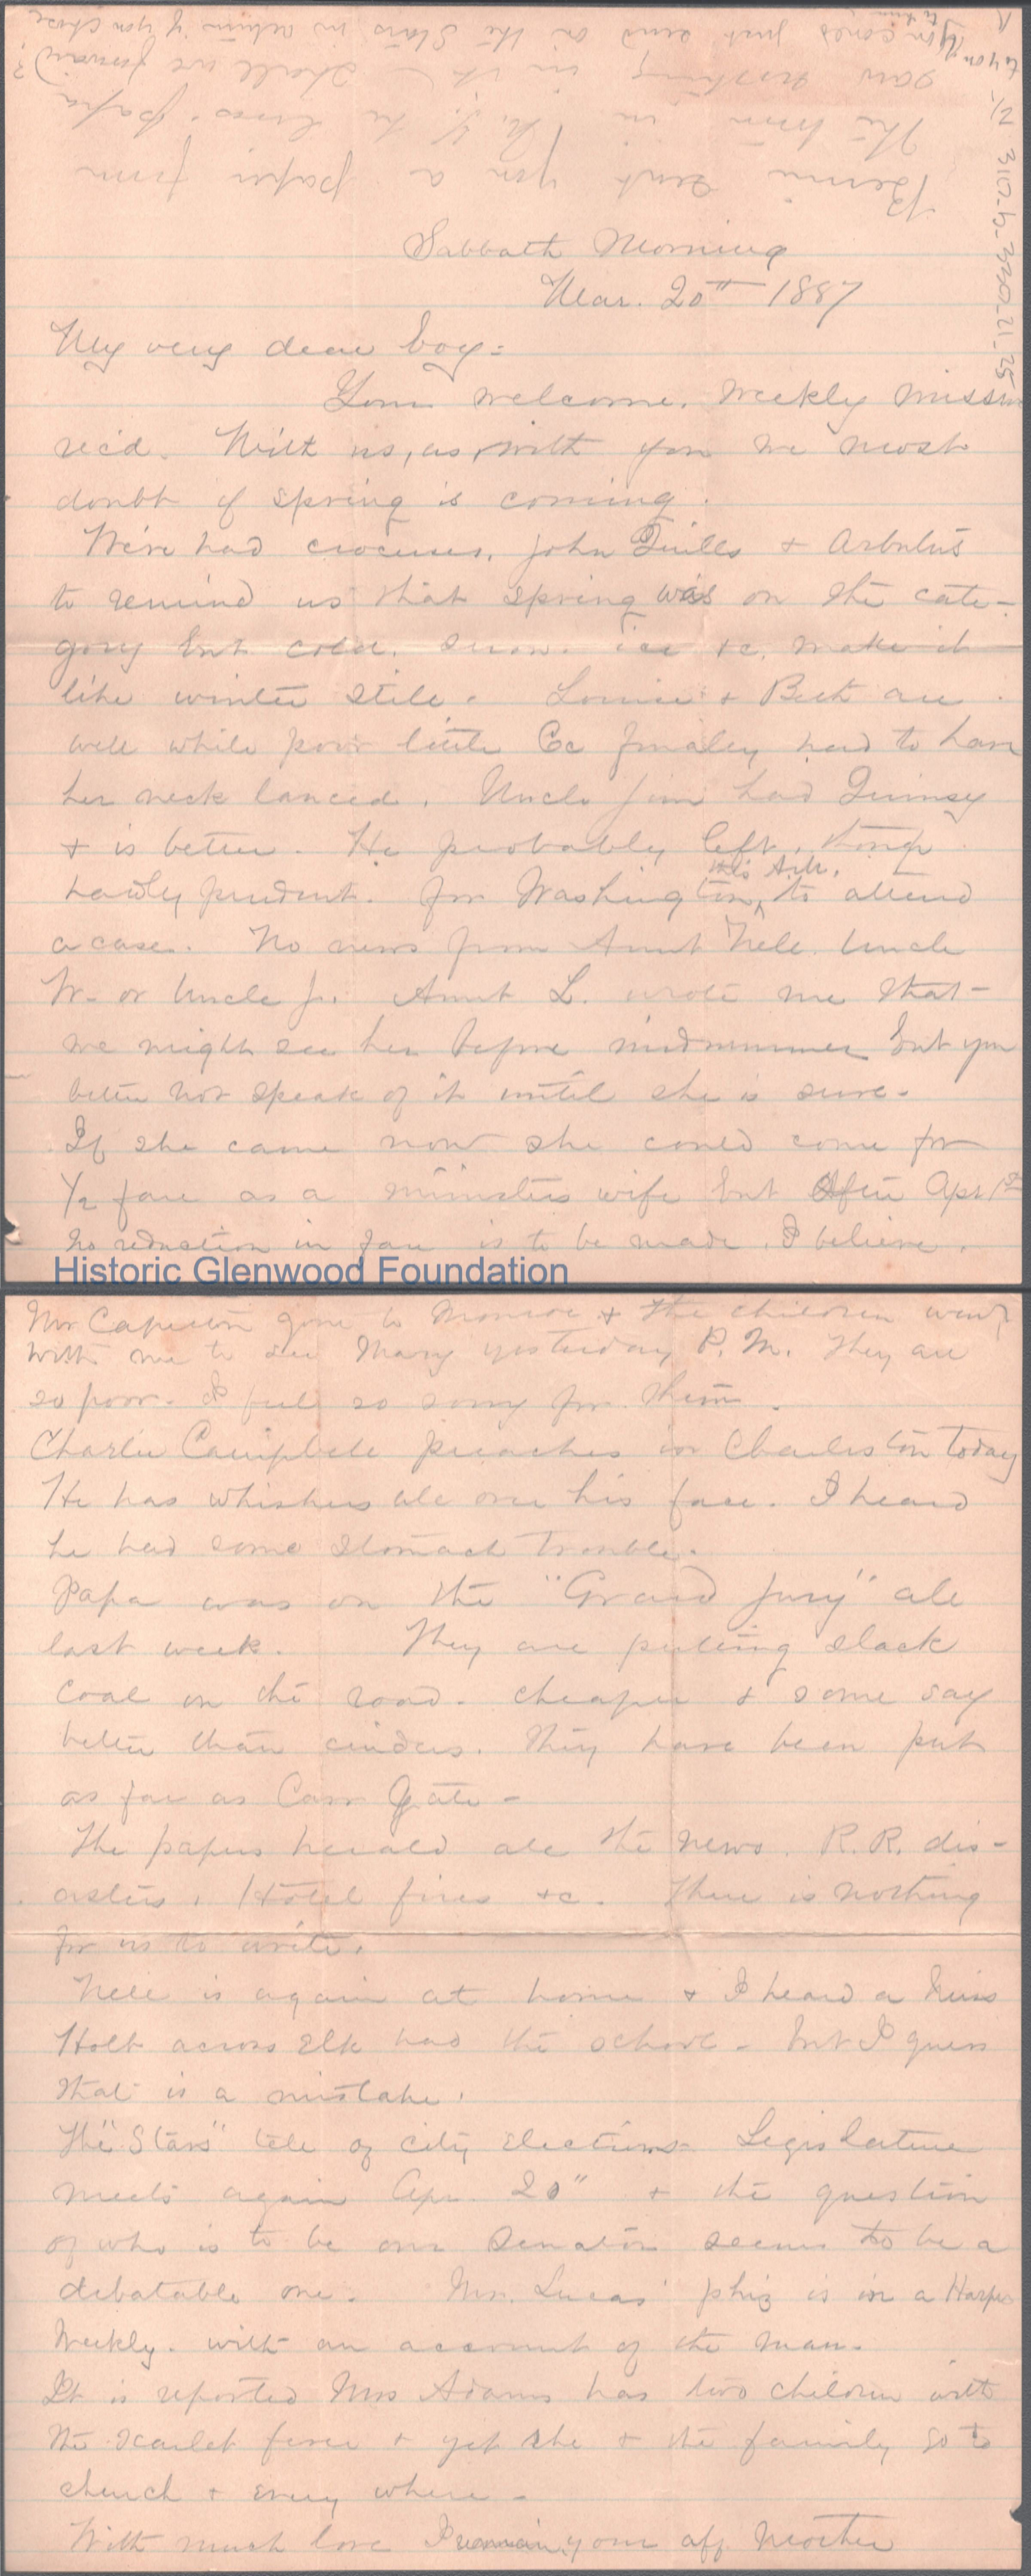 Bennie sent you a paper from
the train in N.Y. he lives. papa
saw nothing in it. Shall we forward?
You can just send on the Stars in return if you chose
to you
310-b-320-21-25
Sabbath Morning
Mar. 20th 1887
My very dear boy:
Your welcome, weekly
rec'd. With us, as, with you we most
doubt if spring is coming.
We've had crocuses, John Quills & Arbutus
to remind us that spring was on the cate-
gory but cold, snow, ice &c. make it
like winter still. & Beth are
well while poor little had to have
her neck lanced. Uncle Jim had Quinsy
& is better. He probably left,
hardly prudent, for Washington, this A.M. to attend
a case. No news from Aunt Nell, Uncle
W. or Uncle J. Aunt L. wrote me that
we might see her before midsummer but you
better not speak of it until she is sure.
If she came now she could come for
1/2 fare as a ministers wife but after Apr 1st
no reduction in fare is to be made, I believe.
Historic Glenwood Foundation
Mr Caperton gone to Monroe & the children went
with me to see Mary yesterday P.M. They are
so poor. I feel so sorry for them.
Charlie Campbell preaches in Charleston today
He has whiskers all over his face. I heard
he had some stomach trouble.
Papa was on the "Grand Jury" all
last week. They are putting slack
coal on the road. cheaper & some say
better than cinders. They have been put
as far as Carr Gate -
The papers herald all the news, R.R. dis-
asters, Hotel fires &c. There is nothing
for us to write.
Nell is again at home & I heard a Miss
Holt across Elk had the school - but I guess
that is a mistake.
The "Stars" tell of city elections - Legislature
meets again Apr. 20" & the question
of who is to be our Senator seems to be a
debatable one. Mr. Lucas' phiz is in a Harper
Weekly. with an account of the man.
It is reported Mrs Adams has two children with
the scarlet fever & yet she & the family go to
church & every where -
With much love I remain your aff. Mother